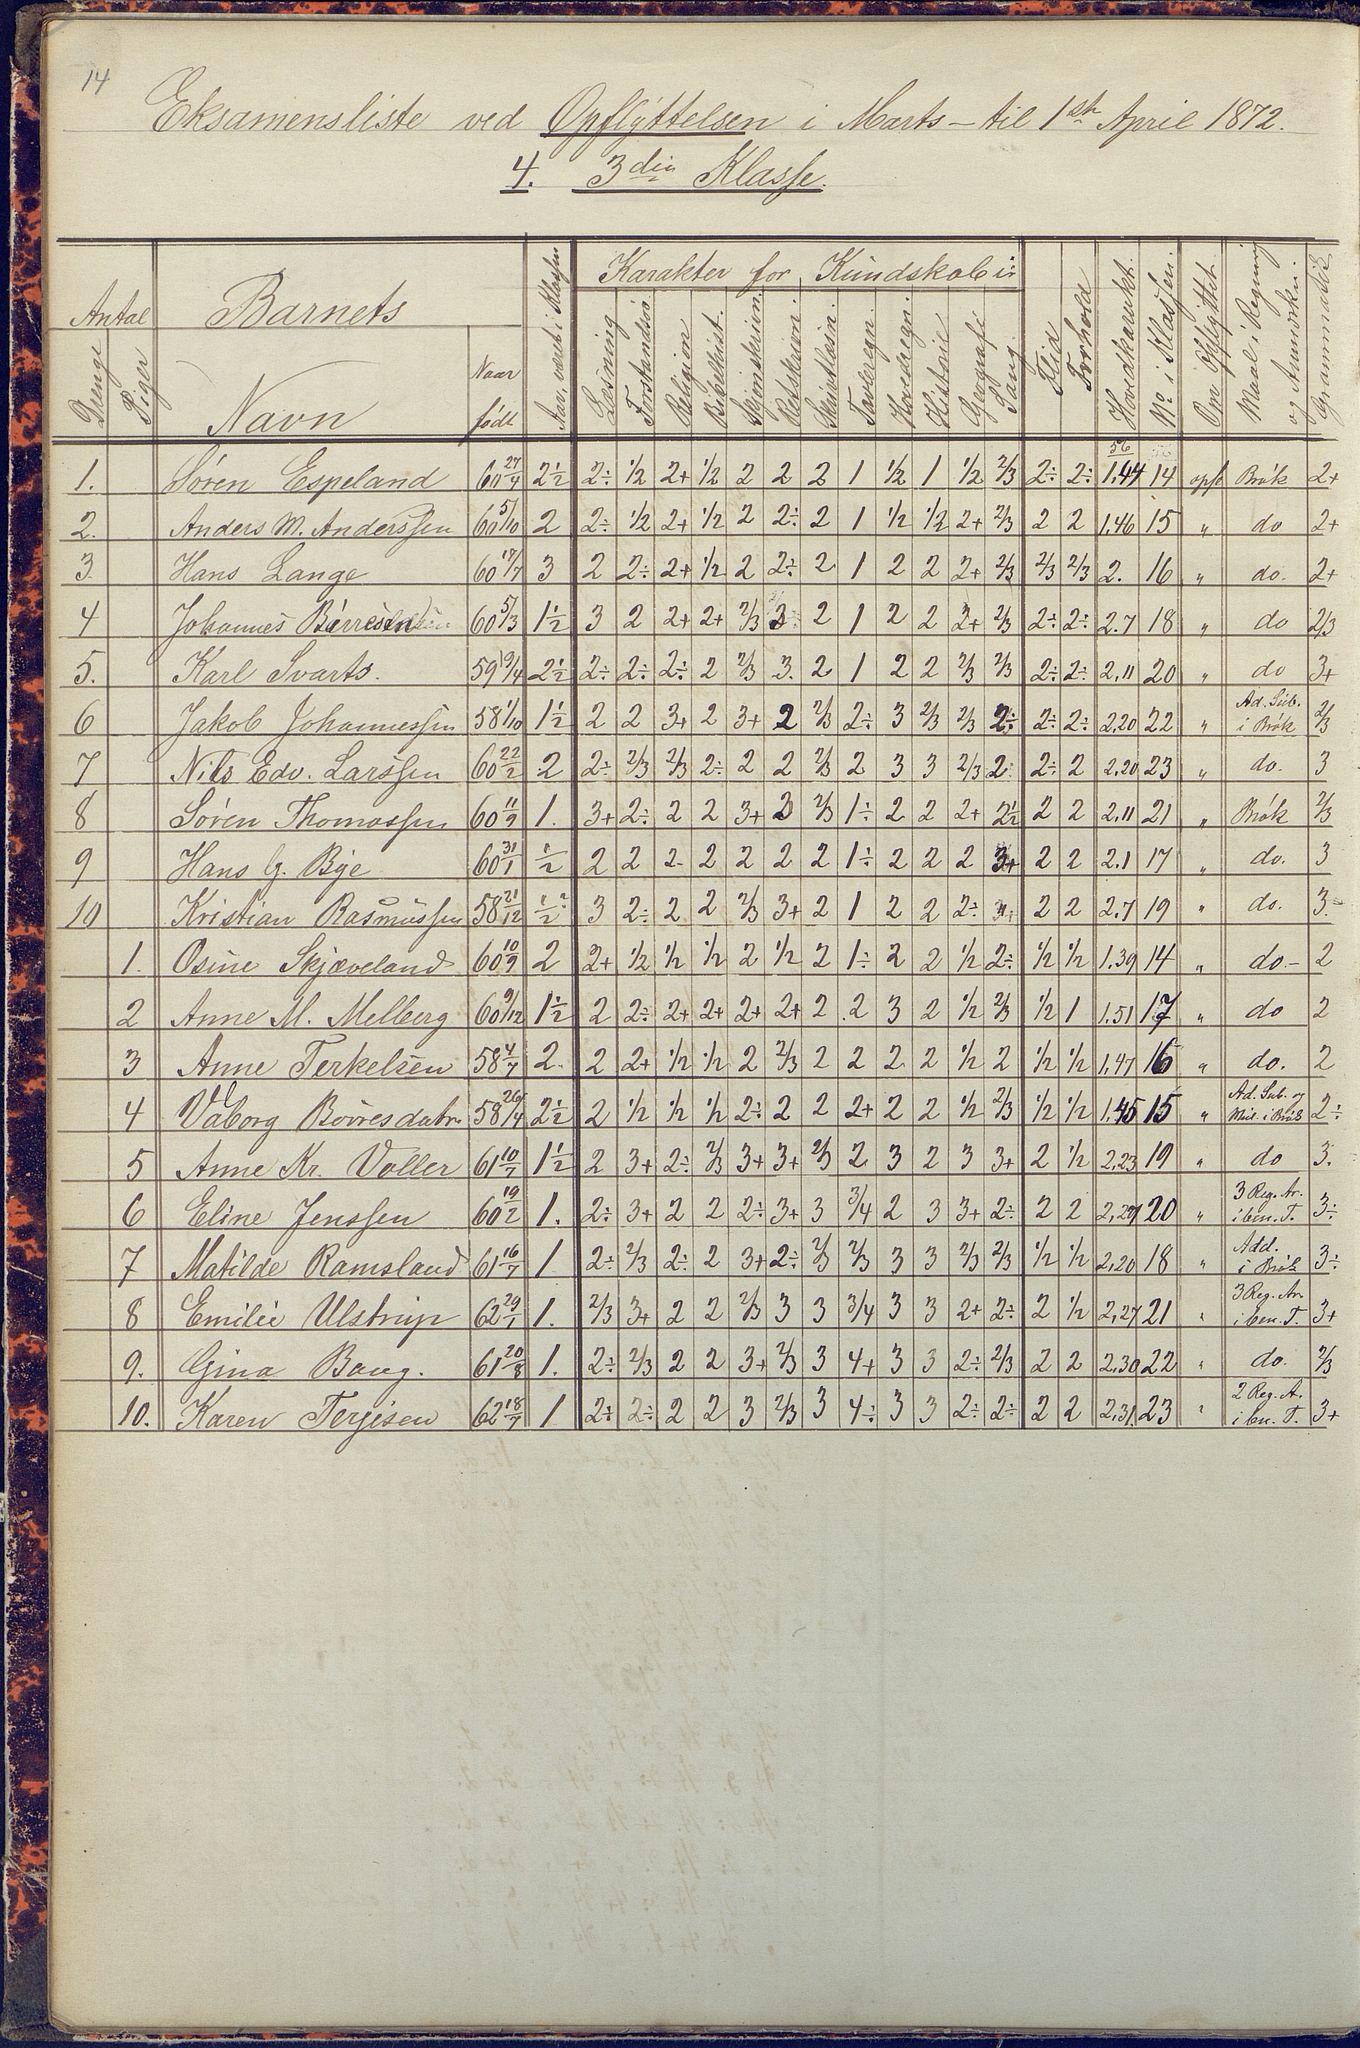 14
Eksamensliste ved Opflyttelsen i Marts – til 1ste April 1872.
4. 3die Klasse.
Antal Barnets Karakter for Kundskab i:
Drenge Piger Navn Naar født Aar, været i Klassen Læsning Forstandsøv. Religion Bibelhist. Skjønskrivn. Retskrivn. Skriftlæsn. Tavleregn. Hovedregn. Historie Geografi Sang. Flid Forhold Hovedkarakt. No i Klassen. Om Opflyttet. Maal i Regning og Anmærkn. Grammatik
56
1. Søren Espeland 60 27/4 2½ 2÷ 1/2 2+ 1/2 2 2 2 1 1/2 1 1/2 2/3 2÷ 2÷ 1.44 14 opfl Brøk 2+
2. Anders M. Anderssen 60 5/10 2 2÷ 1/2 2+ 1/2 2 2÷ 2 1 1/2 1/2 2+ 2/3 2 2 1,46 15 " do 2+
3. Hans Lange 60 17/7 3 2 2÷ 2+ 1/2 2 2÷ 2 1 2 2 2+ 2/3 2/3 2/3 2. 16 " do. 2+
4 Johannes Børresen 60 5/3 1½ 3 2 2+ 2+ 2/3 3 2 1 2 2 2+ 2/3 2÷ 2÷ 2.7 18 " do 2/3
5. Karl Svarts. 59 19/4 2½ 2÷ 2÷ 2÷ 2 2/3 3. 2 1 2 2 2/3 2/3 2÷ 2÷ 2,11 20 " do 3+
6 Jakob Johannessen 58 1/10 1½ 2 2 3+ 2 3+ 2 2/3 2÷ 3 2/3 2/3 2÷ 2÷ 2÷ 2,20 22 " Ad. Sub. i Brøk 2/3
7 Nils Edv. Larssen 60 22/2 2 2÷ 2/3 2/3 2÷ 2 2 2/3 2 3 3 2/3 2 2÷ 2 2,20 23 " do. 3
8 Søren Thomassen 60 11/9 1. 3+ 2÷ 2 2 3+ 2 2/3 1÷ 2 2 2+ 2½ 2 2 2,11 21 " Brøk 2/3
9 Hans G. Bye 60 31/1 ½ 2 2 2 2 2 2 2 1÷ 2 2 2 3+ 2 2 2.1 17 " do. 3
10 Kristian Rasmussen 58 21/12 ½ 3 2÷ 2 2 2/3 3+ 2 1 2 2 2÷ 3+ 2 2 2.7 19 " do. 3
1. Osine Skjæveland 60 10/9 2 2+ 1/2 1/2 1/2 2 1/2 2 1÷ 2 2 1/2 2÷ 1/2 1/2 1.39 14 " do – 2
2 Anne M. Melberg 60 9/12 1½ 2 2÷ 2+ 2+ 2+ 2+ 2 2 3 2 1/2 2/3 1/2 1 1,51 17 " do 2
3 Anne Terkelsen 58 4/7 2 2 2+ 1/2 1/2 2 2/3 2 2 2 2 1/2 2 1/2 1/2 1,47 16 " do. 2
4 Valborg Børresdatr. 58 26/4 2½ 2 1/2 1/2 1/2 2÷ 2 2 2+ 2 2 1/2 2/3 1/2 1/2 1.45 15 " Ad. Sub. og Mul. i Brøk 2÷
5 Anne Kr. Voller 61 10/7 1½ 2 3+ 2÷ 2/3 3+ 3+ 2/3 2 3 2 3 3+ 2 1/2 2,23 19 " do 3.
6 Eline Jenssen 60 19/2 1. 2÷ 3+ 2 2 2÷ 3+ 3 3/4 2 3 3+ 2÷ 2 2 2,27 20 " 3 Reg. Ar. i ben. T. 3÷
7 Matilde Ramsland 61 16/7 1 2÷ 2/3 2÷ 2 3+ 2÷ 2/3 2/3 3 3 2/3 2/3 1/2 1/2 2,20 18 " Add. i Brøk 3÷
8 Emilie Ulstrup 62 29/1 1. 2/3 3+ 2 2 2/3 3 3 3/4 3 3 2+ 2÷ 2 1/2 2,27 21 " 3 Reg. Ar. i ben. T. 3+
9. Gina Baug. 61 20/8 1. 2÷ 2/3 2 2 3+ 2/3 3 4+ 3 3 2÷ 2/3 2 2 2,30 22 " do. 2/3
10. Karen Terjesen 62 18/7 1 2÷ 2÷ 2 2 3 2/3 3 4÷ 3 3 2÷ 2÷ 2 2 2,31. 23 " 2 Reg. A. i ben. T. 3+